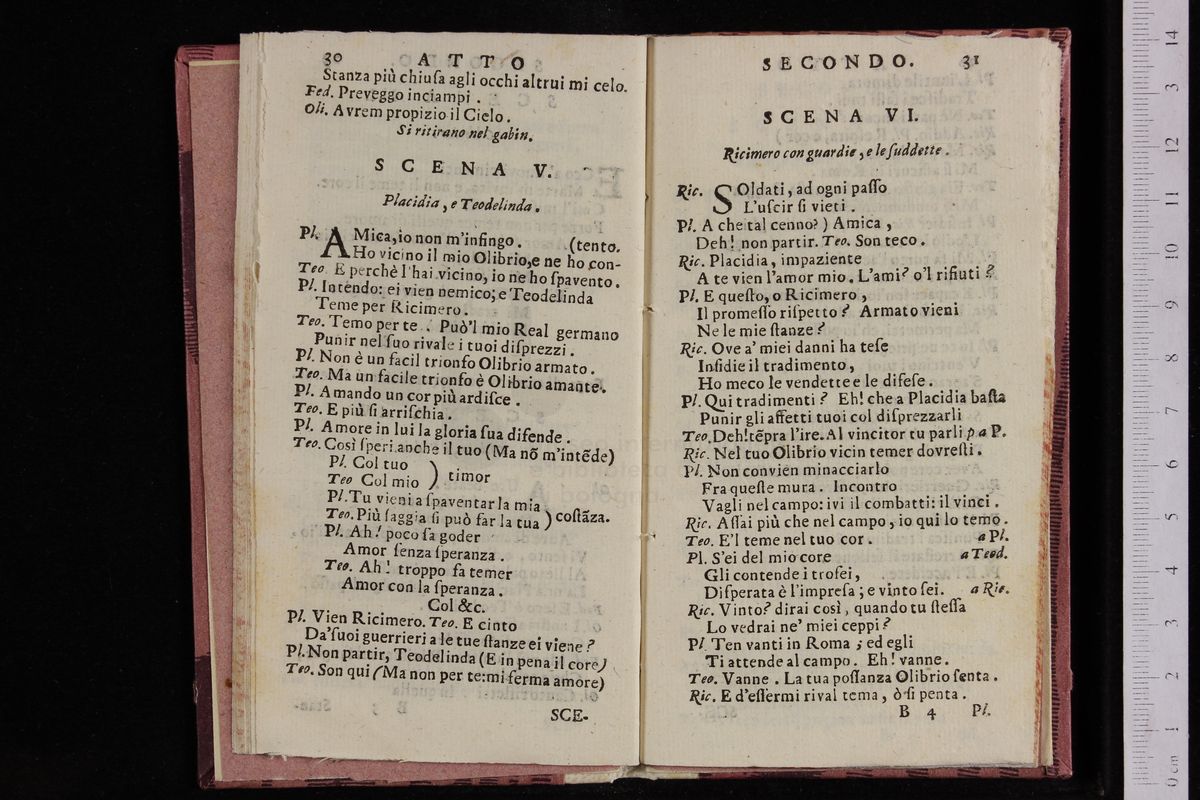 30 ATTO
Stanza più chiuſa agli occhi altrui mi celo.
Fed. Preveggo inciampi .
Oli. Avrem propizio il Cielo.
Si ritirano nel gabin.
SCENA V.
Placidia, e Teodelinda .
Pl. AMica, io non m'infingo . (tento.
Ho vicino il mio Olibrio, e ne ho con-
Teo. E perchè l'hai vicino, io ne ho ſpavento.
Pl. Intendo: ei vien nemico; e Teodelinda
Teme per Ricimero.
Teo. Temo per te . Può'l mio Real germano
Punir nel ſuo rivale i tuoi diſprezzi .
Pl. Non è un facil trionfo Olibrio armato.
Teo. Ma un facile trionfo è Olibrio amante.
Pl. Amando un cor più ardiſce .
Teo. E più ſi arriſchia .
Pl. Amore in lui la gloria ſua difende .
Teo. Così ſperi anche il tuo (Ma nõ m'intẽde)
Pl. Col tuo
Teo Col mio ) timor
Pl. Tu vieni a ſpaventar la mia
Teo. Più ſaggia ſi può far la tua ) coſtãza.
Pl. Ah! poco fa goder
Amor ſenza ſperanza .
Teo. Ah! troppo fa temer
Amor con la ſperanza .
Col &c.
Pl. Vien Ricimero. Teo. E cinto
Da' ſuoi guerrieri a le tue ſtanze ei viene ?
Pl. Non partir, Teodelinda (E in pena il core)
Teo. Son qui (Ma non per te: mi ferma amore)
SCE-
SECONDO. 31
SCENA VI.
Ricimero con guardie, e le ſuddette .
Ric. SOldati, ad ogni paſſo
L'uſcir ſi vieti .
Pl. A che tal cenno? ) Amica ,
Deh! non partir. Teo. Son teco .
Ric. Placidia, impaziente
A te vien l'amor mio. L'ami? o'l rifiuti ?
Pl. E queſto, o Ricimero ,
Il promeſſo riſpetto ? Armato vieni
Ne le mie ſtanze ?
Ric. Ove a' miei danni ha teſe
Inſidie il tradimento ,
Ho meco le vendette e le difeſe .
Pl. Qui tradimenti ? Eh! che a Placidia baſta
Punir gli affetti tuoi col diſprezzarli
Teo. Deh! tẽpra l'ire. Al vincitor tu parli p a P.
Ric. Nel tuo Olibrio vicin temer dovreſti .
Pl. Non convien minacciarlo
Fra queſte mura . Incontro
Vagli nel campo: ivi il combatti: il vinci .
Ric. Aſſai più che nel campo, io qui lo temo .
Teo. E'l teme nel tuo cor . a Pl.
Pl. S'ei del mio core a Teod.
Gli contende i trofei,
Diſperata è l'impreſa ; e vinto ſei. a Ric.
Ric. Vinto? dirai così, quando tu ſteſſa
Lo vedrai ne' miei ceppi ?
Pl. Ten vanti in Roma ; ed egli
Ti attende al campo . Eh! vanne .
Teo. Vanne . La tua poſſanza Olibrio ſenta .
Ric. E d'eſſermi rival tema, ò ſi penta .
B 4 Pl.